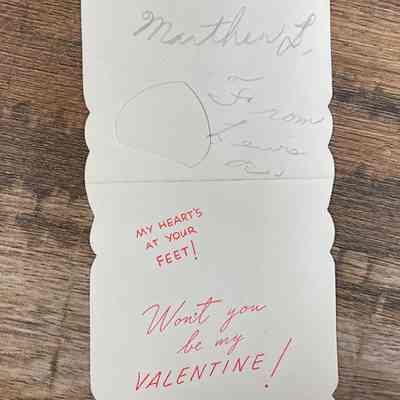 L.
From
MY HEART'S
AT YOUR
FEET!
Won't you
be my
VALENTINE!